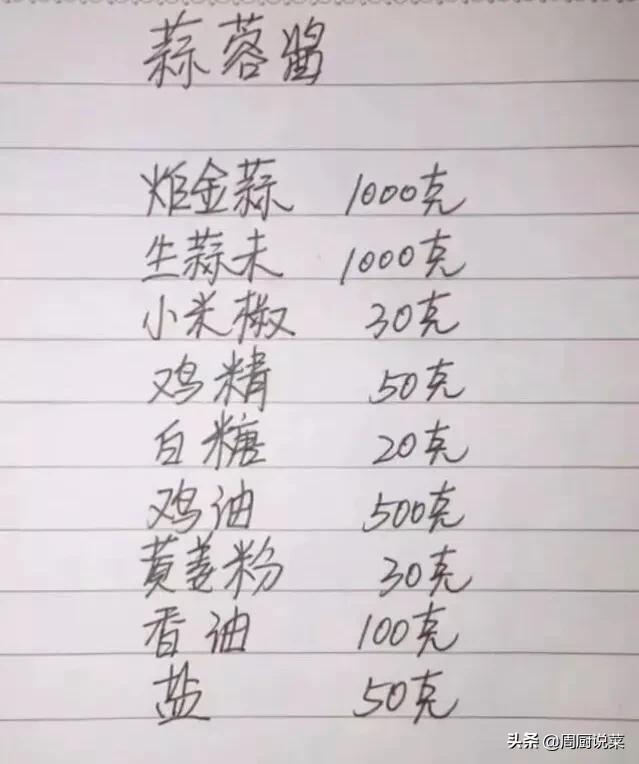 蒜蓉酱
炸金蒜 1000克
生蒜未 1000克
小米椒 30克
鸡精 50克
白糖 20克
鸡油 500克
黄姜粉 30克
香油 100克
盐 50克
头条 @周厨说菜